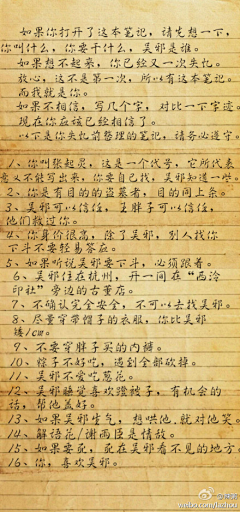 如果你打开了这本笔记，请先想一下，
你叫什么，你要干什么，吴邪是谁。
如果想不起来，你已经又一次失忆。
放心，这不是第一次，所以有这本笔记。
而我就是你。
如果不相信，写几个字，对比一下字迹。
现在你应该已经相信了。
以下是你失忆前整理的笔记，请务必遵守。
1、你叫张起灵，这是一个代号，它所代表
意义不能写出来，你要自己找，吴邪知道一些。
2、你是有目的的盗墓者，目的同上条。
3、吴邪可以信任，王胖子可以信任，
他们救过你。
4、你身价很高，除了吴邪，别人找你
下斗不要轻易答应。
5、如果听说吴邪要下斗，必须跟着。
6、吴邪住在杭州，开一间在“西泠
印社”旁边的古董店。
7、不确认完全安全，不可以去找吴邪。
8、尽量穿带帽子的衣服，你比吴邪
矮1cm。
9、不要穿胖子买的内裤。
10、粽子不好吃，遇到全部砍掉。
11、吴邪不爱吃葱花。
12、吴邪睡觉喜欢蹬被子，有机会的
话，帮他盖好。
13、如果吴邪生气，想哄他，就对他笑。
14、解语花/谢雨臣是情敌。
15、如果要死，死在吴邪看不见的地方。
16、你，喜欢吴邪。